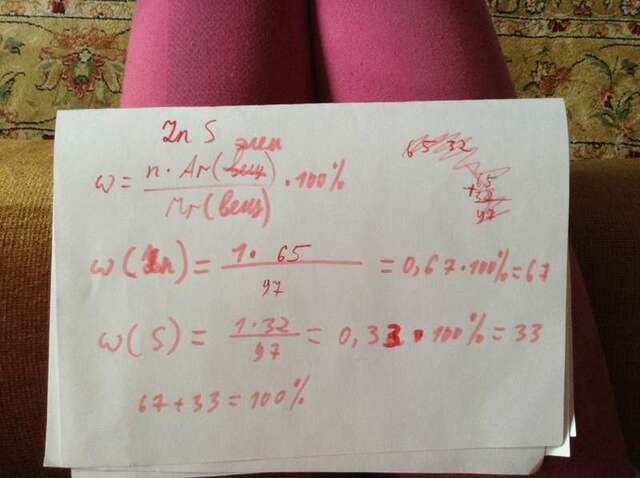 Zn S
ω = n · Ar(вещ) элем / Mr(вещ) · 100%
65 32
65
+32
97
ω (Zn) = 1 · 65 / 97 = 0,67 · 100% = 67
ω (S) = 1 · 32 / 97 = 0,33 · 100% = 33
67 + 33 = 100%